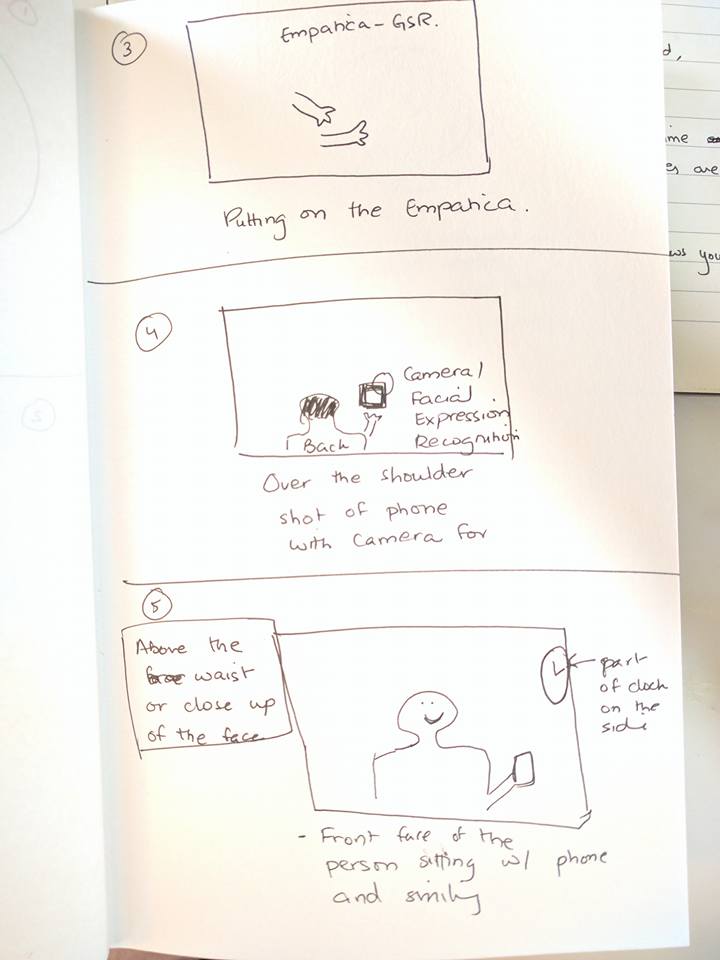 3
Empatica - GSR.
Putting on the Empatica.
4
Camera/
Facial
Expression
Recognition
Back
Over the shoulder
shot of phone
with camera for
5
Above the
waist
or close up
of the face
part
of clock
on the
side
- Front face of the
person sitting w/ phone
and smiling
d,
ime
es are
ws you